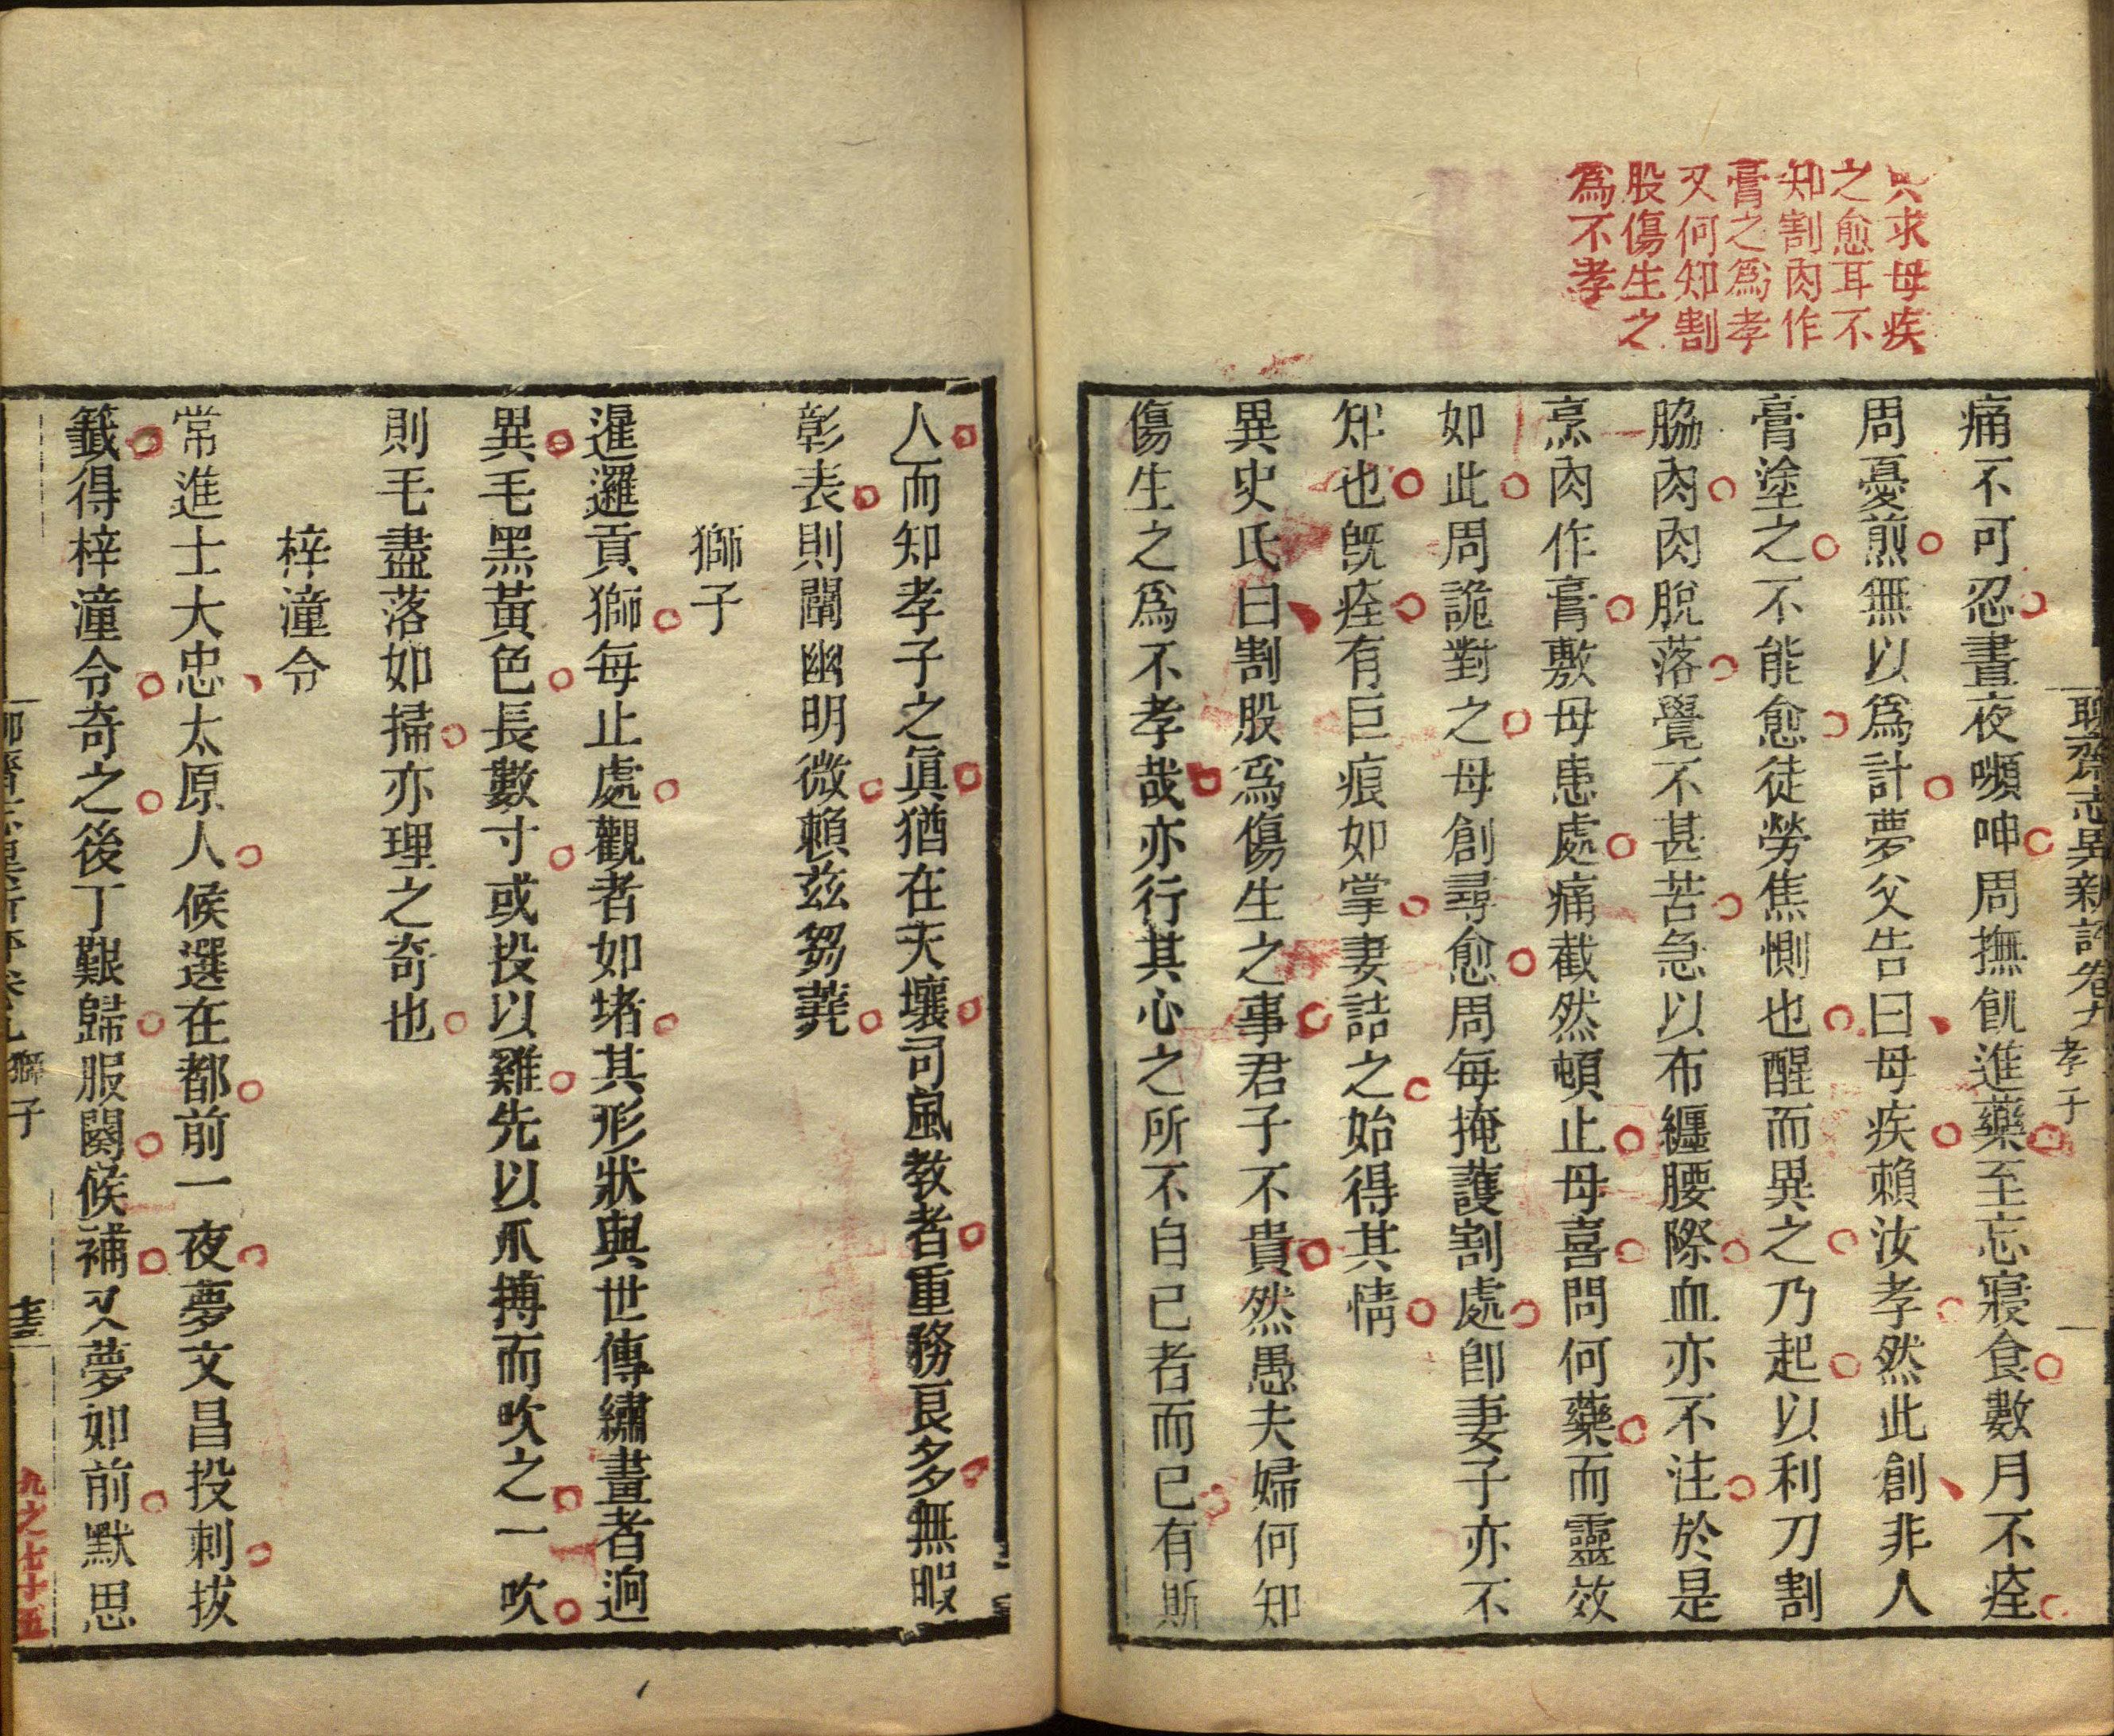 只求母疾
之愈耳不
知割肉作
膏之爲孝
又何知割
股傷生之
爲不孝
聊齋志異新評卷九 孝子
痛不可忍晝夜嚬呻周撫肌進藥至忘寢食數月不痊
周憂煎無以爲計夢父告曰母疾賴汝孝然此創非人
膏塗之不能愈徒勞焦惻也醒而異之乃起以利刀割
脇肉肉脫落覺不甚苦急以布纏腰際血亦不注於是
烹肉作膏敷母患處痛截然頓止母喜問何藥而靈效
如此周詭對之母創尋愈周每掩護割處卽妻子亦不
知也旣痊有巨痕如掌妻詰之始得其情
異史氏曰割股爲傷生之事君子不貴然愚夫婦何知
傷生之爲不孝哉亦行其心之所不自已者而已有斯
人而知孝子之眞猶在天壤司風教者重務良多無暇
彰表則闡幽明微賴茲芻蕘
獅子
暹邏貢獅每止處觀者如堵其形狀與世傳繡畫者迥
異毛黑黃色長數寸或投以雞先以爪摶而吹之一吹
則毛盡落如掃亦理之奇也
梓潼令
常進士大忠太原人候選在都前一夜夢文昌投刺拔
籤得梓潼令奇之後丁艱歸服闋候補又夢如前默思
獅子
九之七十五